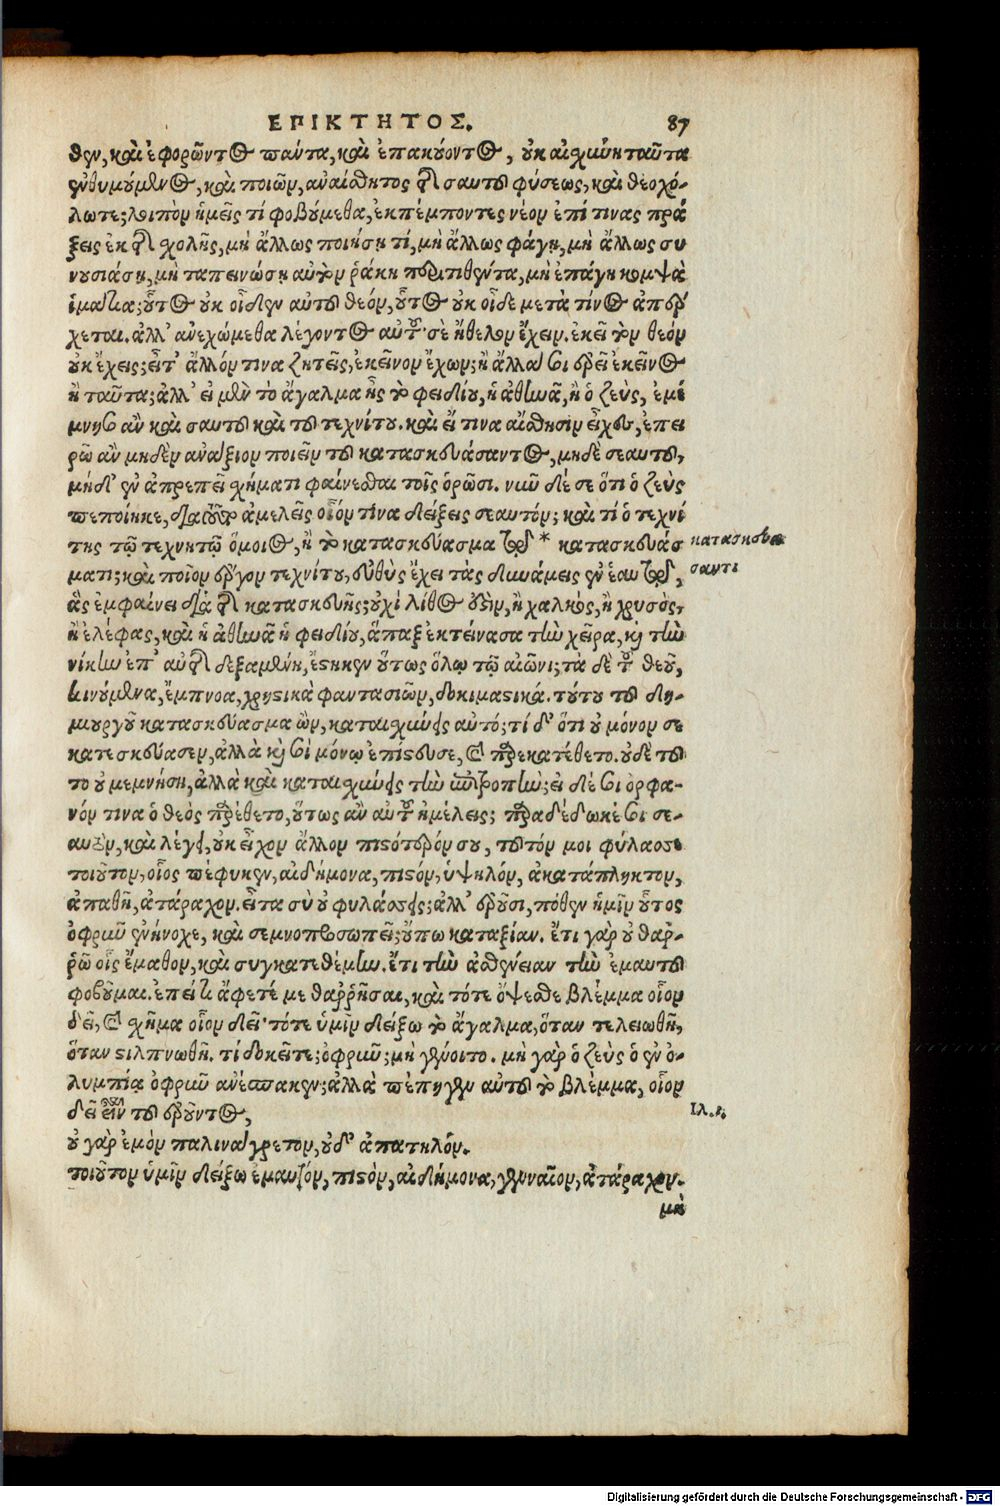 ΕΠΙΚΤΗΤΟΣ. 87
θεν, καὶ ἐφορῶντος πάντα, καὶ ἐπακούοντος, οὐκ αἰσχύνῃ ταῦτα
ἐνθυμούμενος, καὶ ποιῶν, ἀναίσθητος τῆς σαυτοῦ φύσεως, καὶ θεοχό-
λωτε; λοιπὸν ἡμεῖς τί φοβούμεθα, ἐκπέμποντες νέον ἐπί τινας πρά
ξεις ἐκ τῆς σχολῆς, μὴ ἄλλως ποιήσῃ τί, μὴ ἄλλως φάγῃ, μὴ ἄλλως συ
νουσιάσῃ, μὴ ταπεινώσῃ αὐτὸν ῥάκη περιτιθέντα, μὴ ἐπάγῃ κομψὰ
ἱμάτια; οὗτος οὐκ οἶδεν αὐτοῦ θεόν, οὗτος οὐκ οἶδε μετὰ τίνος ἀπέρ
χεται. ἀλλ' ἀνεχώμεθα λέγοντος αὐτοῦ· σὲ ἤθελον ἔχειν. ἐκεῖ τὸν θεὸν
οὐκ ἔχεις; εἶτ' ἄλλόν τινα ζητεῖς, ἐκεῖνον ἔχων; ἢ ἄλλα σοι ἐρεῖ ἐκεῖνος
ἢ ταῦτα; ἀλλ' εἰ μὲν τὸ ἄγαλμα ἦς τὸ φειδίου, ἡ ἀθηνᾶ, ἢ ὁ ζεὺς, ἐμέ
μνησο ἂν καὶ σαυτοῦ καὶ τοῦ τεχνίτου. καὶ εἴ τινα αἴσθησιν εἶχες, ἐπει
ρῶ ἂν μηδὲν ἀνάξιον ποιεῖν τοῦ κατασκευάσαντος, μηδὲ σεαυτοῦ,
μήδ' ἐν ἀπρεπεῖ σχήματι φαίνεσθαι τοῖς ὁρῶσι. νῦν δέ σε ὅτι ὁ ζεὺς
πεποίηκε, διὰ τοῦτο ἀμελεῖς οἷόν τινα δείξεις σεαυτόν; καὶ τί ὁ τεχνί
της τῷ τεχνητῷ ὅμοιος, ἢ τὸ κατασκεύασμα τῷ * κατασκευάσ κατασκευα
ματι; καὶ ποῖον ἔργον τεχνίτου, εὐθὺς ἔχει τὰς δυνάμεις ἐν ἑαυτῷ, σαντι
ἃς ἐμφαίνει διὰ τῆς κατασκευῆς; οὐχὶ λίθος ἐστὶν, ἢ χαλκὸς, ἢ χρυσὸς,
ἢ ἐλέφας, καὶ ἡ ἀθηνᾶ ἡ φειδίου, ἅπαξ ἐκτείνασα τὴν χεῖρα, καὶ τὴν
νίκην ἐπ' αὐτῆς δεξαμένη, ἕστηκεν οὕτως ὅλῳ τῷ αἰῶνι; τὰ δὲ τοῦ θεοῦ,
κινούμενα, ἔμπνοα, χρηστικὰ φαντασιῶν, δοκιμαστικά. τούτου τοῦ δη-
μιουργοῦ κατασκεύασμα ὢν, καταισχύνεις αὐτό; τί δ' ὅτι οὐ μόνον σε
κατεσκεύασεν, ἀλλὰ καὶ σοὶ μόνῳ ἐπίστευσε, καὶ παρεκατέθετο. οὐδὲ τού
του μεμνήσῃ, ἀλλὰ καὶ καταισχύνεις τὴν ἐπιτροπήν; εἰ δέ σοι ὀρφα-
νόν τινα ὁ θεὸς παρέθετο, οὕτως ἂν αὐτοῦ ἠμέλεις; παραδέδωκέ σοι σε-
αυτὸν, καὶ λέγει, οὐκ εἶχον ἄλλον πιστότερόν σου, τοῦτόν μοι φύλασσε
τοιοῦτον, οἷος πέφυκεν, αἰδήμονα, πιστόν, ὑψηλόν, ἀκατάπληκτον,
ἀπαθῆ, ἀτάραχον. εἶτα σὺ οὐ φυλάσσεις; ἀλλ' ἐροῦσι, πόθεν ἡμῖν οὗτος
ὀφρῦν ἐνήνοχε, καὶ σεμνοπροσωπεῖ; οὔπω κατἀξίαν. ἔτι γὰρ οὐ θαρ-
ρῶ οἷς ἔμαθον, καὶ συγκατεθέμην. ἔτι τὴν ἀσθένειαν τὴν ἐμαυτοῦ
φοβοῦμαι. ἐπεί τι ἄφετέ με θαῤῥῆσαι, καὶ τότε ὄψεσθε βλέμμα οἷον
δεῖ, καὶ σχῆμα οἷον δεῖ· τότε ὑμῖν δείξω τὸ ἄγαλμα, ὅταν τελειωθῇ,
ὅταν στιλπνωθῇ. τί δοκεῖτε; ὀφρῦν; μὴ γένοιτο. μὴ γὰρ ὁ ζεὺς ὁ ἐν ὀ-
λυμπίᾳ ὀφρῦν ἀνέσπακεν; ἀλλὰ πέπηγεν αὐτοῦ τὸ βλέμμα, οἷον
δεῖ εἶναι τοῦ ἐροῦντος, Ιλ. α.
οὐ γὰρ ἐμὸν παλινάγρετον, οὐδ' ἀπατηλόν.
τοιοῦτον ὑμῖν δείξω ἐμαυτόν, πιστὸν, αἰδήμονα, γενναῖον, ἀτάραχον.
μὴ
Digitalisierung gefördert durch die Deutsche Forschungsgemeinschaft - DFG